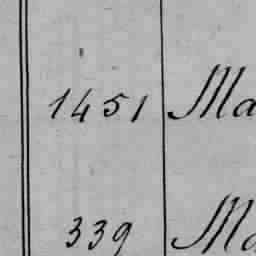 1451 Ma
339 Ma